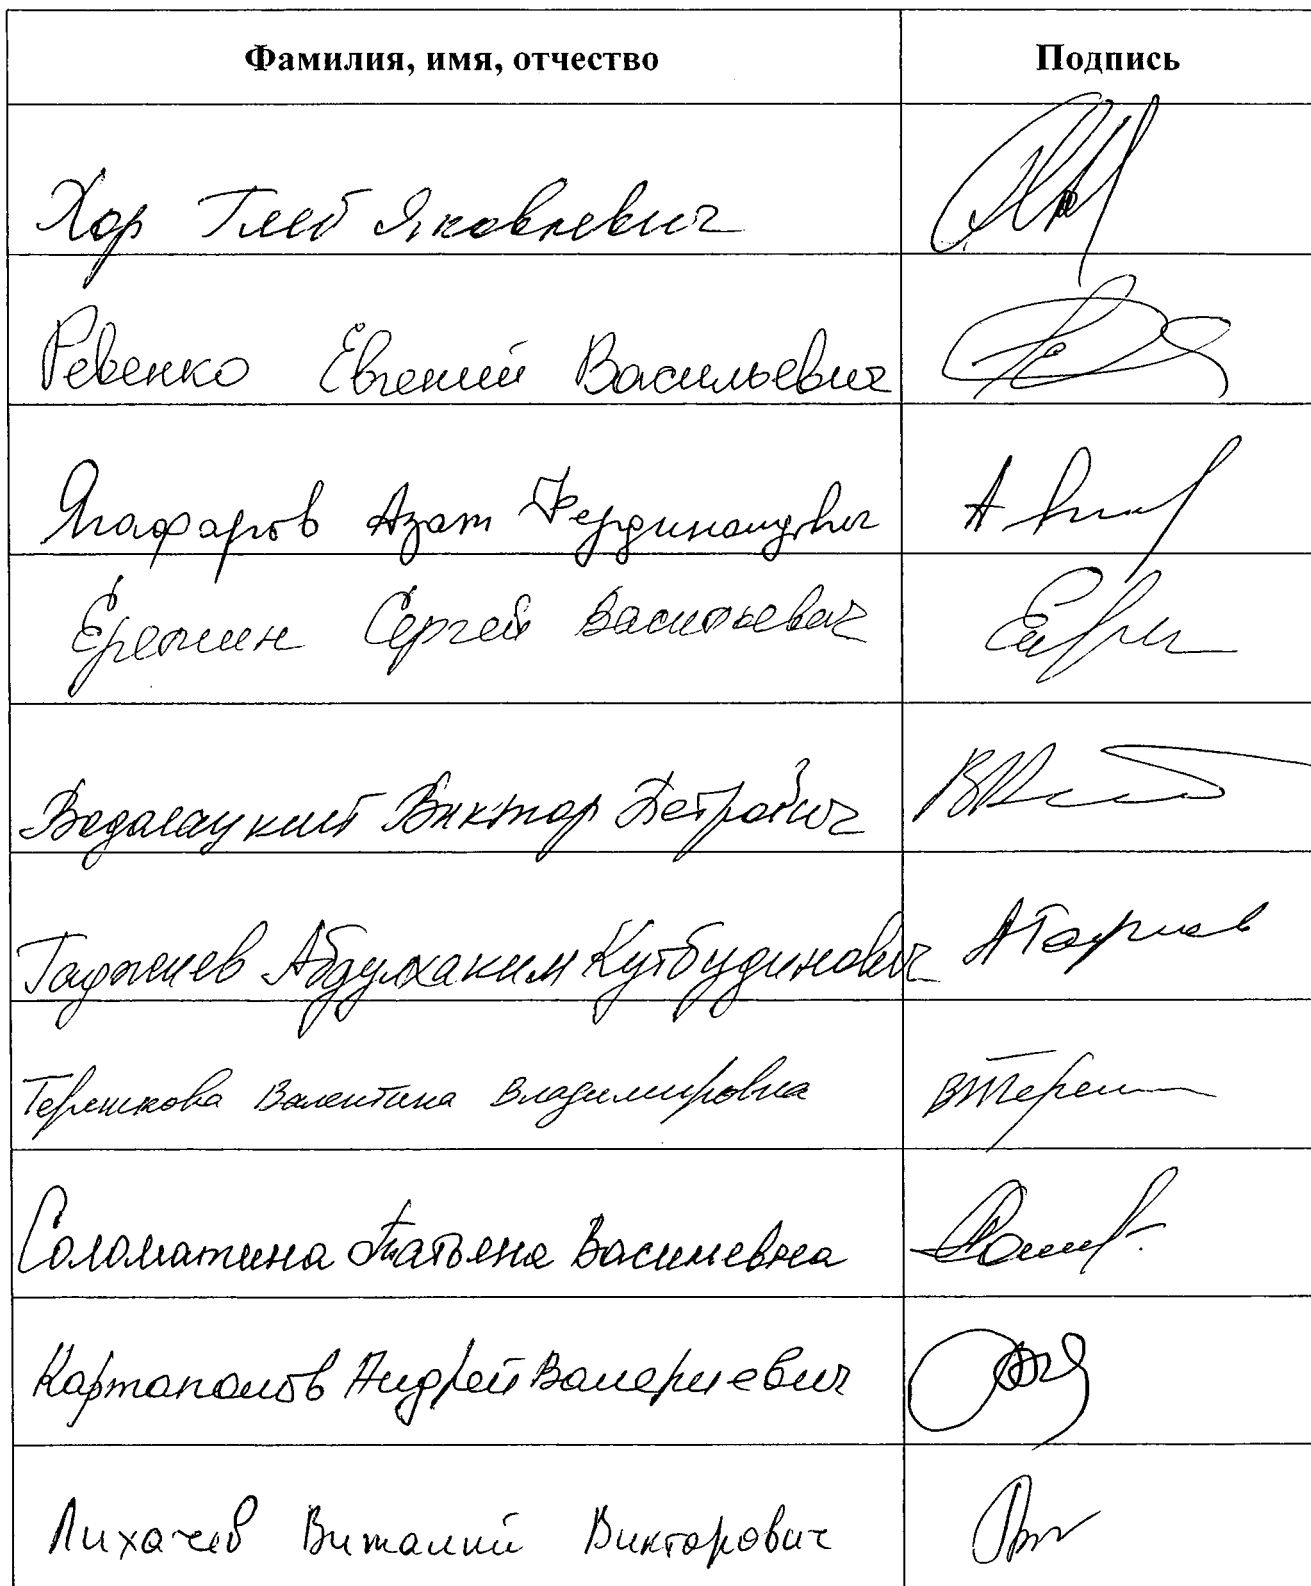 Фамилия, имя, отчество Подпись
Хор Глеб Яковлевич
Ревенко Евгений Васильевич
Ягафаров Азат Фердинандович
Ерёмин Сергей Васильевич
Водолацкий Виктор Петрович
Гаджиев Абдулхаким Кутбудинович
Терешкова Валентина Владимировна
Соломатина Татьяна Васильевна
Картаполов Андрей Валериевич
Лихачев Виталий Викторович